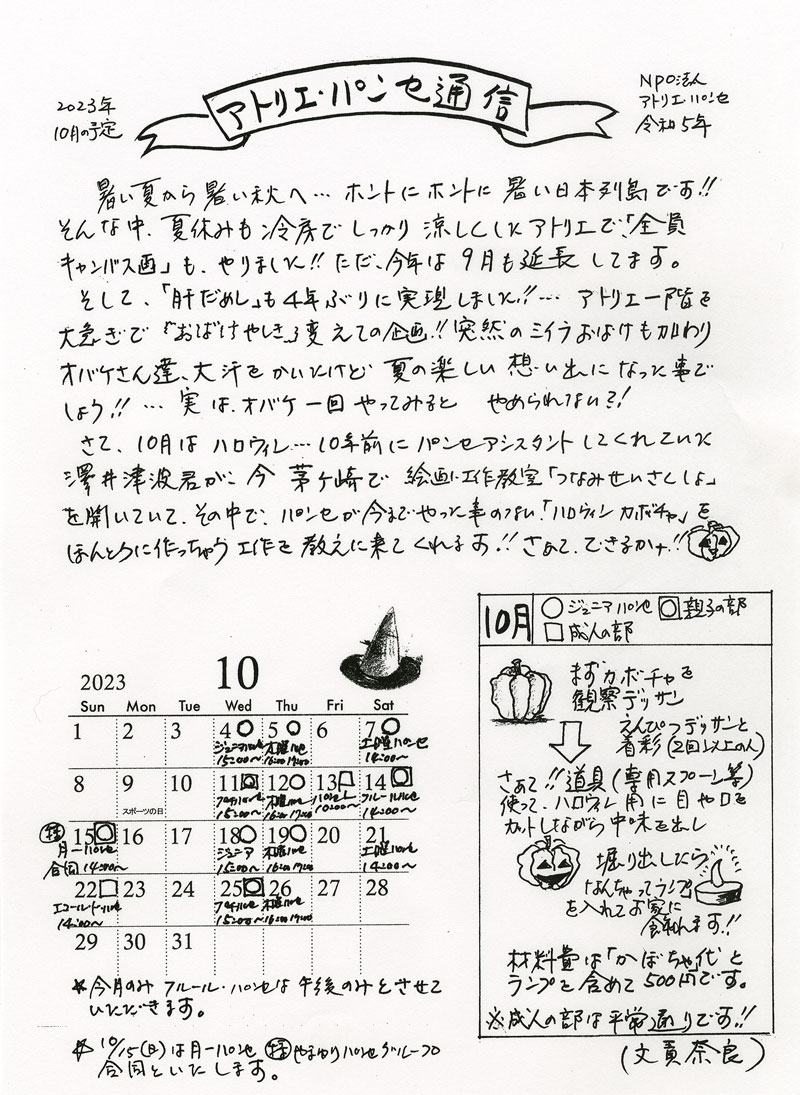 2023年
10月の予定
アトリエ・パンセ通信
NPO法人
アトリエ・パンセ
令和5年
暑い夏から暑い秋へ…ホントにホントに暑い日本列島です!!
そんな中、夏休みも冷房でしっかり涼しくしたアトリエで、「全員
キャンバス画」も、やりました!!ただ、今年は9月も延長してます。
そして、「肝だめし」も4年ぶりに実現しました!!…アトリエ一階を
大急ぎで『おばけやしき』に変えての企画!!突然のミイラおばけも加わり
オバケさん達、大汗をかいたけど夏の楽しい想い出になった事で
しょう!!…実は、オバケ一回やってみると やめられない?!
さて、10月はハロウィン…10年前にパンセアシスタントしてくれていた
澤井津波君が、今茅ケ崎で絵画・工作教室「つなみせいさくしょ」
を開いていて、その中で、パンセが今までやった事のない「ハロウィンカボチャ」を
ほんとうに作っちゃう工作を教えに来てくれます!!さぁて、できるかナ!!
10月 ○ジュニアパンセ ◎親子の部
□成人の部
まずカボチャを
観察デッサン
えんぴつデッサンと
着彩(2回以上の人)
さあて!!道具(専用スプーン等)
使って、ハロウィン用に目や口を
カットしながら中味を出し
堀り出したら
「なんちゃってランプ」
を入れてお家に
飾れます!!
材料費は「かぼちゃ」代と
ランプを含めて500円です。
※成人の部は平常通りです!!
(文責奈良)
2023 10
Sun Mon Tue Wed Thu Fri Sat
1 2 3 4 5 6 7
ジュニアパンセ 木曜パンセ 土曜パンセ
15:00〜 16:00 17:00 14:00〜
8 9 10 11 12 13 14
スポーツの日 木曜パンセ フルールパンセ
15:00〜 16:00 17:00 10:00〜 14:00〜
15 16 17 18 19 20 21
月一パンセ ジュニア 木曜パンセ 土曜パンセ
合同 14:00〜 15:00〜 16:00 17:00 14:00〜
22 23 24 25 26 27 28
エコールドパンセ 木曜パンセ
14:00〜 15:00〜 16:00 17:00
29 30 31
＊今月のみ フルール・パンセは午後のみとさせて
いただきます。
＊10/15(日)は月一パンセ やまゆりパンセグループの
合同といたします。